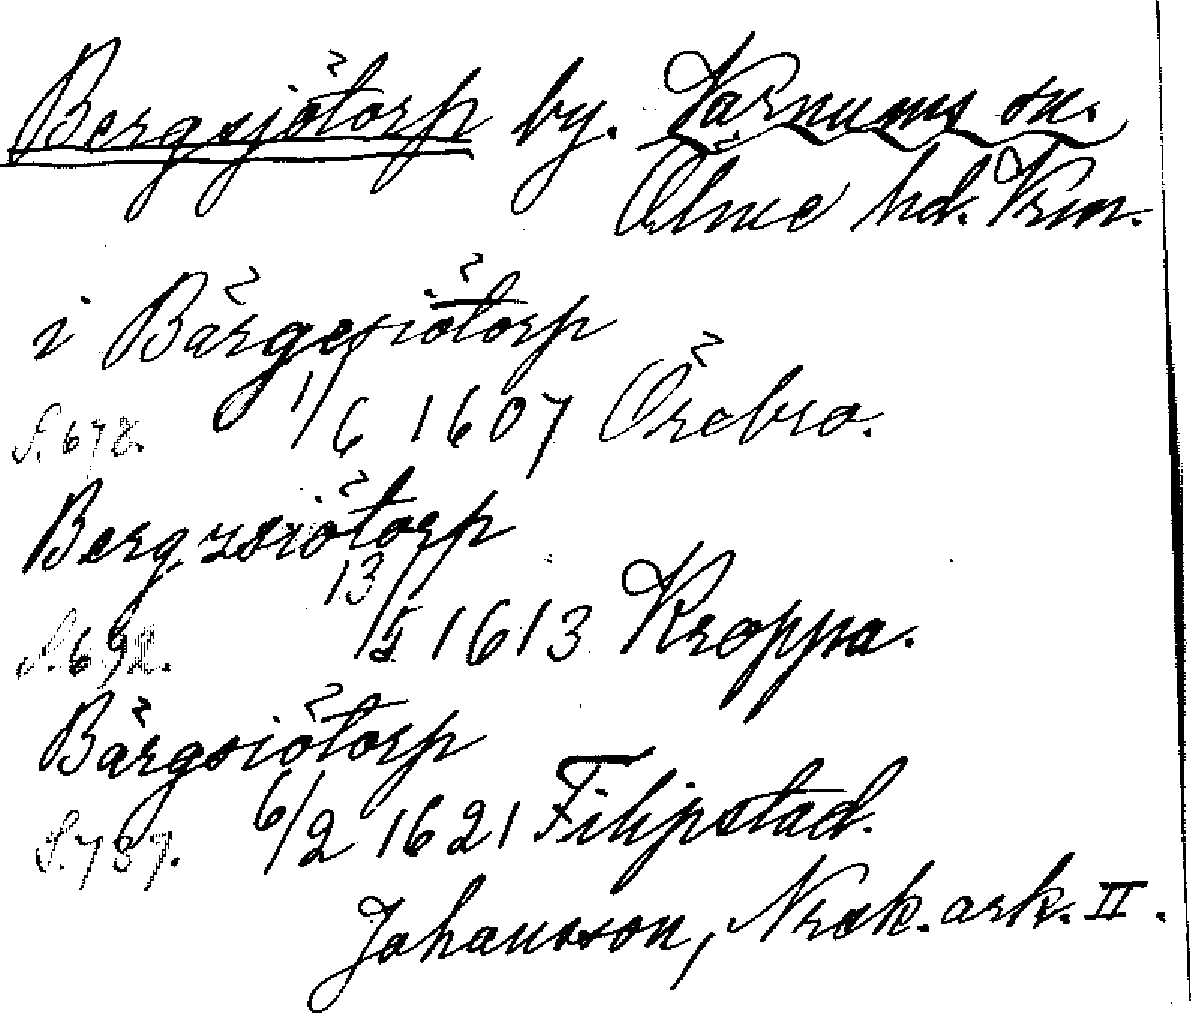 Bergsjötorp by. Varnums sn.
Ölme hd. Vrm.
i Bärgesiötorp
S. 678. 1/6 1607 Örebro.
Bergzsiötorp
S. 692. 13/5 1613 Kroppa.
Bärgsiötorp
S. 737. 6/2 1621 Filipstad.
Johansson, Nrck. ark. II.